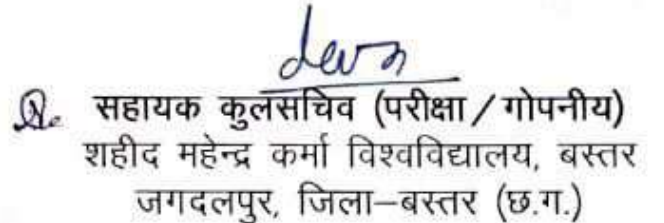 सहायक कुलसचिव (परीक्षा/गोपनीय)
शहीद महेन्द्र कर्मा विश्वविद्यालय, बस्तर
जगदलपुर, जिला–बस्तर (छ.ग.)